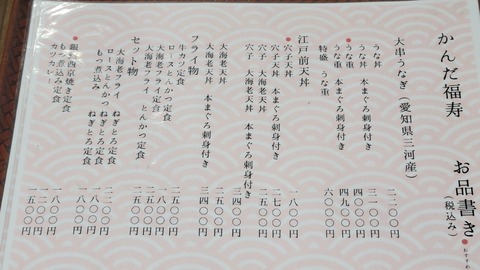 かんだ福寿 お品書き（税込み） ●おすすめ
大串うなぎ（愛知県三河産）
うな丼 二二〇〇円
うな丼 本まぐろ刺身付き 三一〇〇円
●うな重 四〇〇〇円
うな重 本まぐろ刺身付き 四九〇〇円
特盛 うな重 六〇〇〇円
江戸前天丼
●穴子天丼 一八〇〇円
穴子天丼 本まぐろ刺身付き 二七〇〇円
穴子 大海老天丼 二五〇〇円
穴子 大海老天丼 本まぐろ刺身付き 三四〇〇円
大海老天丼
大海老天丼 本まぐろ刺身付き 三四〇〇円
フライ物
牛カツ定食 二五〇〇円
ロースとんかつ定食
大海老フライ定食
大海老フライ とんかつ定食
セット物
大海老フライ ねぎとろ定食
ロースとんかつ ねぎとろ定食
もつ煮込み ねぎとろ定食 一八〇〇円
●銀 西京焼き定食 一八〇〇円
もつ煮込み定食 一二〇〇円
カツカレー 一八〇〇円